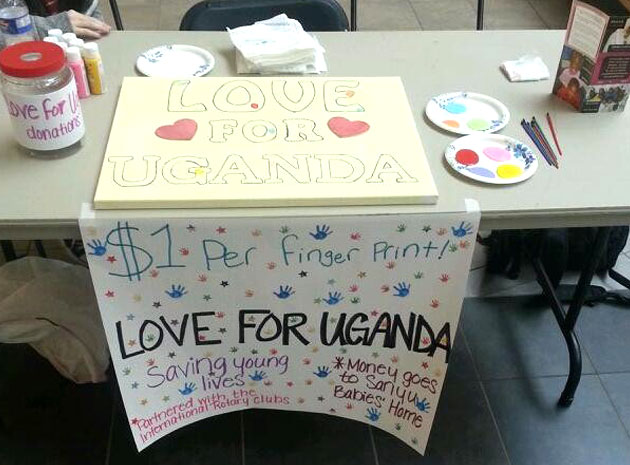 Love For U
donations
LOVE
FOR
UGANDA
$1 Per finger Print!
LOVE FOR UGANDA
Saving young
lives
*Partnered with the
International Rotary clubs
*Money goes
to Sanyu
Babies' Home